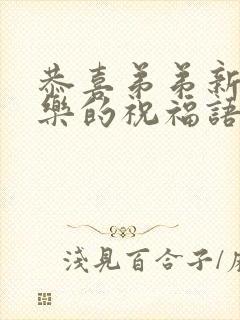 恭喜弟弟新
樂的祝福語
淺見百合子/